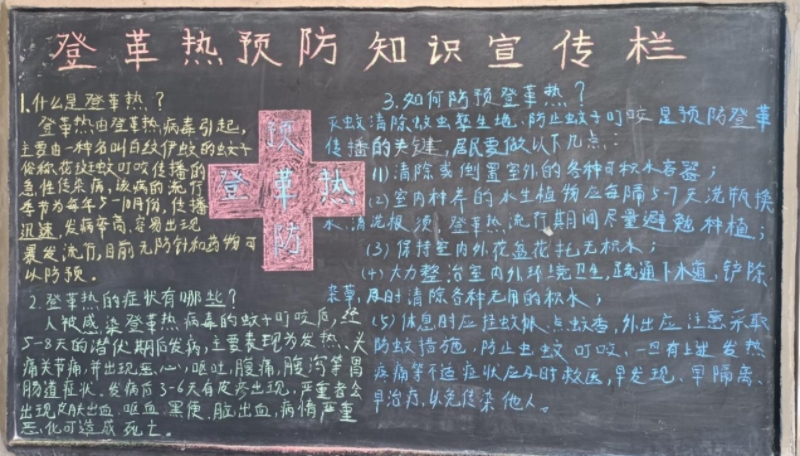 登革热预防知识宣传栏
1.什么是登革热？
登革热由登革热病毒引起，
主要由一种名叫白纹伊蚊的蚊子
俗称花斑蚊叮咬传播的
急性传染病，该病的流行
季节为每年5-10月份，传播
迅速，发病率高，容易出现
暴发流行，目前无防针和药物可
以防预。
预
登革热
防
2.登革热的症状有哪些？
人被感染登革热病毒的蚊子叮咬后，经
5-8天的潜伏期后发病，主要表现为发热、头
痛关节痛，并出现恶心，呕吐，腹痛，腹泻等胃
肠道症状。发病后3-6天有皮疹出现，严重者会
出现皮肤出血，呕血，黑便，脏出血，病情严重
恶化可造成死亡。
3.如何防预登革热？
灭蚊清除蚊虫孳生地，防止蚊子叮咬是预防登革
传播的关键，居民要做以下几点：
(1)清除或倒置室外的各种可积水容器；
(2)室内种养的水生植物应每隔5-7天洗瓶换
水，清洗根须，登革热流行期间尽量避免种植；
(3)保持室内外花盆花托无积水；
(4)大力整治室内外环境卫生，疏通下水道，铲除
杂草，及时清除各种无用的积水；
(5)休息时应挂蚊帐、点蚊香，外出应注意采取
防蚊措施，防止虫蚊叮咬，一旦有上述发热
疼痛等不适症状应及时救医，早发现、早隔离、
早治疗，以免传染他人。